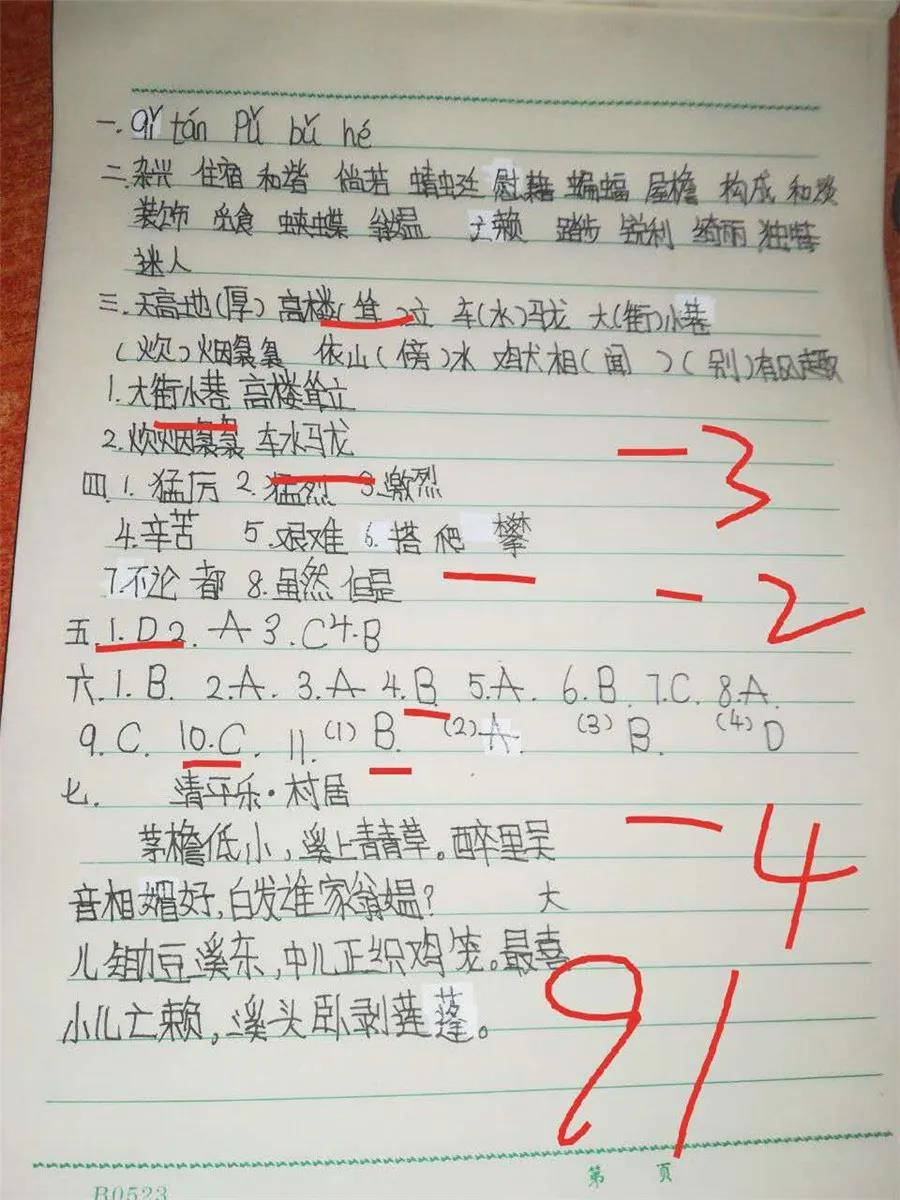 一. qǐ tán pǔ bǔ hé
二. 杂兴 住宿 和谐 倘若 蜻蜓 慰藉 蝙蝠 屋檐 构成 和谈
装饰 觅食 蛱蝶 翁媪 亡赖 踏步 锐利 绮丽 独特
迷人
三. 天高地(厚) 高楼(耸)立 车(水)马龙 大(街)小巷
(炊)烟袅袅 依山(傍)水 鸡犬相(闻)(别)有风趣
1. 大街小巷 高楼耸立
2. 炊烟袅袅 车水马龙
-3
四. 1. 猛厉 2. 猛烈 3. 激烈
4. 辛苦 5. 艰难 6. 搭 爬 攀
7. 不论 都 8. 虽然 但是
-2
五. 1. D 2. A 3. C 4. B
六. 1. B. 2. A. 3. A 4. B 5. A. 6. B 7. C. 8. A.
9. C. 10. C. 11. (1) B. (2) A. (3) B. (4) D
七. 清平乐·村居
-4
茅檐低小,溪上青青草。醉里吴
音相媚好,白发谁家翁媪? 大
儿锄豆溪东,中儿正织鸡笼。最喜
小儿亡赖,溪头卧剥莲蓬。
91
第 页
B0523